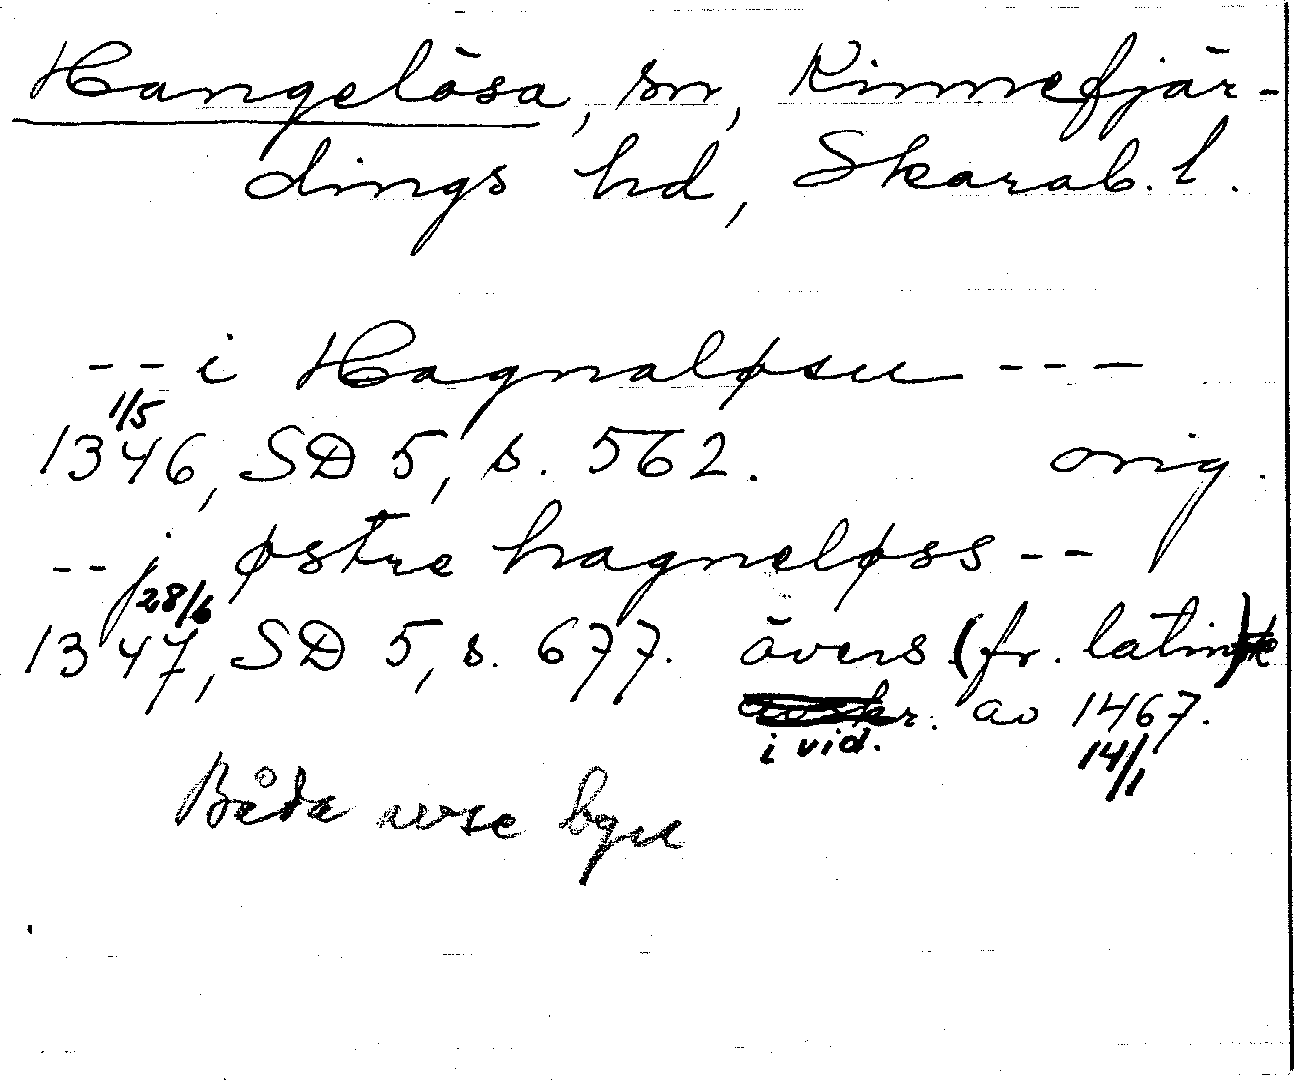 Hangelösa, sn, Kinnefjär-
dings hd, Skarab. l.
-- i Hagnaløsu ---
1/5
1346, SD 5, s. 562. orig.
-- j østre hagneløss --
28/6
1347, SD 5, s. 677. övers (fr. latin)
av 1467.
i vid. 14/1
Båda avse byn